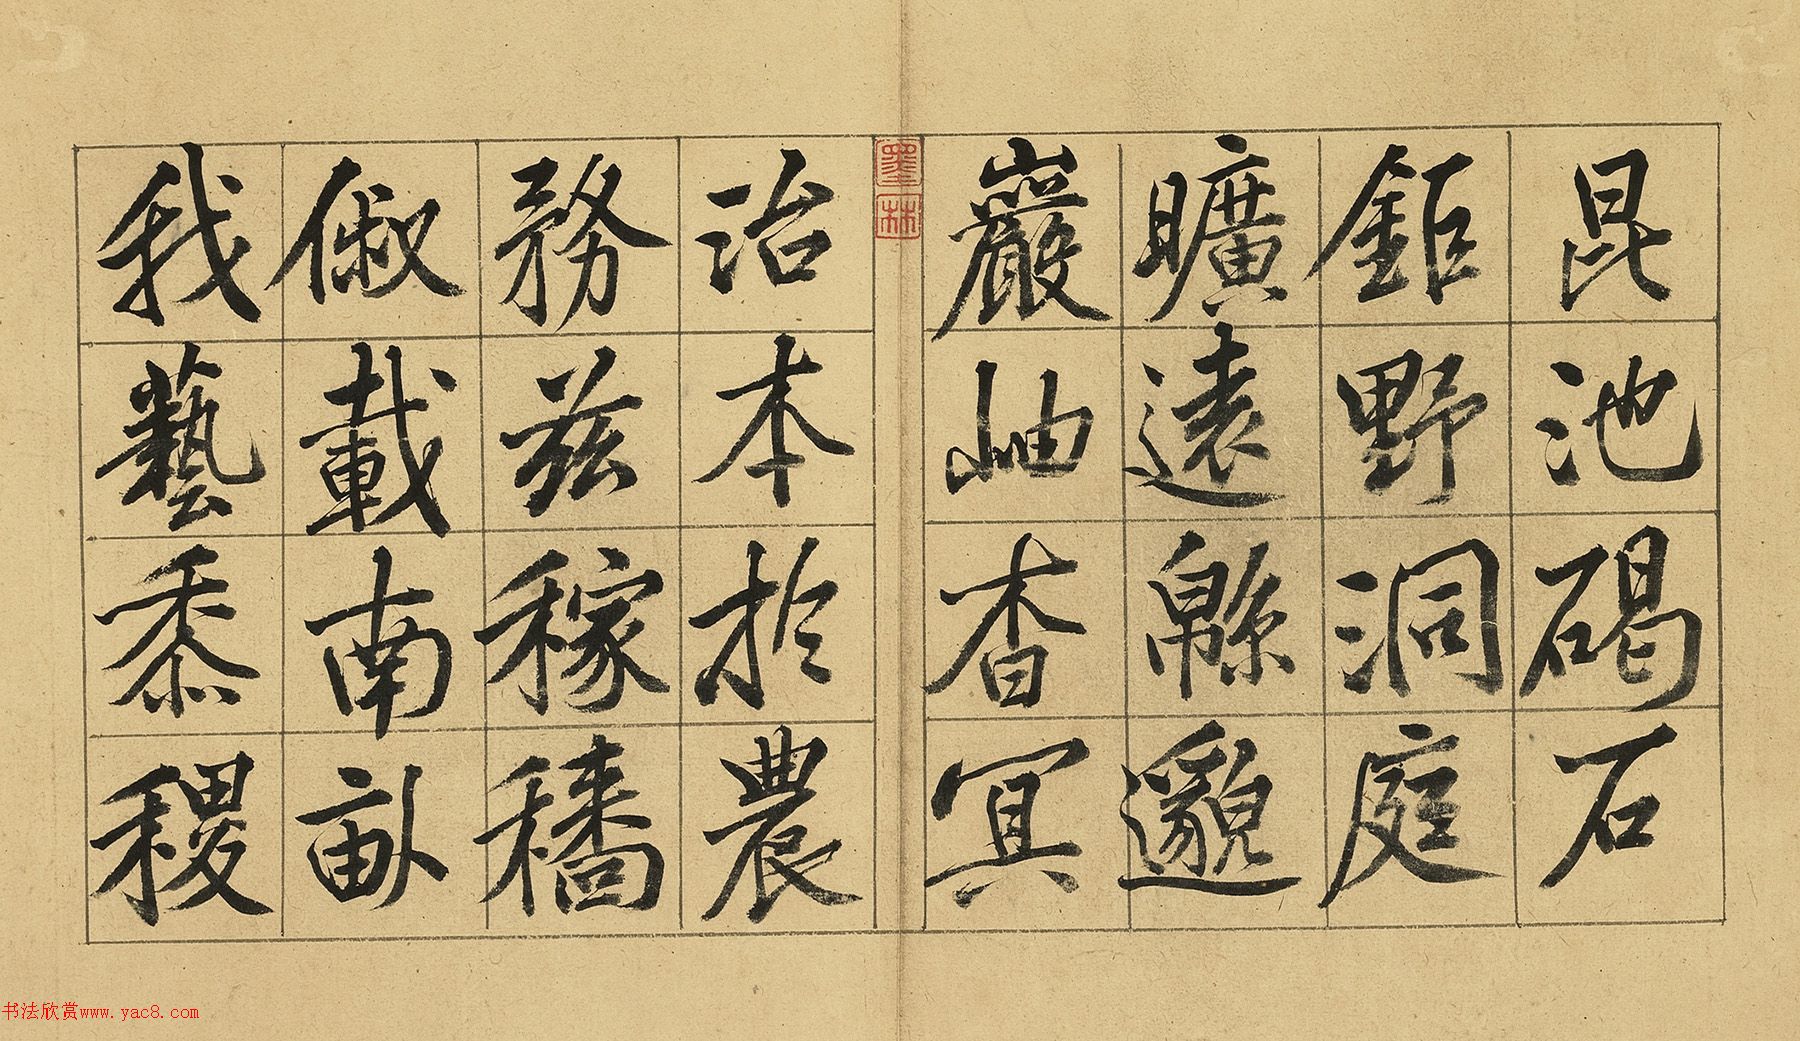 昆池碣石
鉅野洞庭
曠遠緜邈
巖岫杳冥
墨林
治本於農
務茲稼穡
俶載南畝
我藝黍稷
书法欣赏www.yac8.com